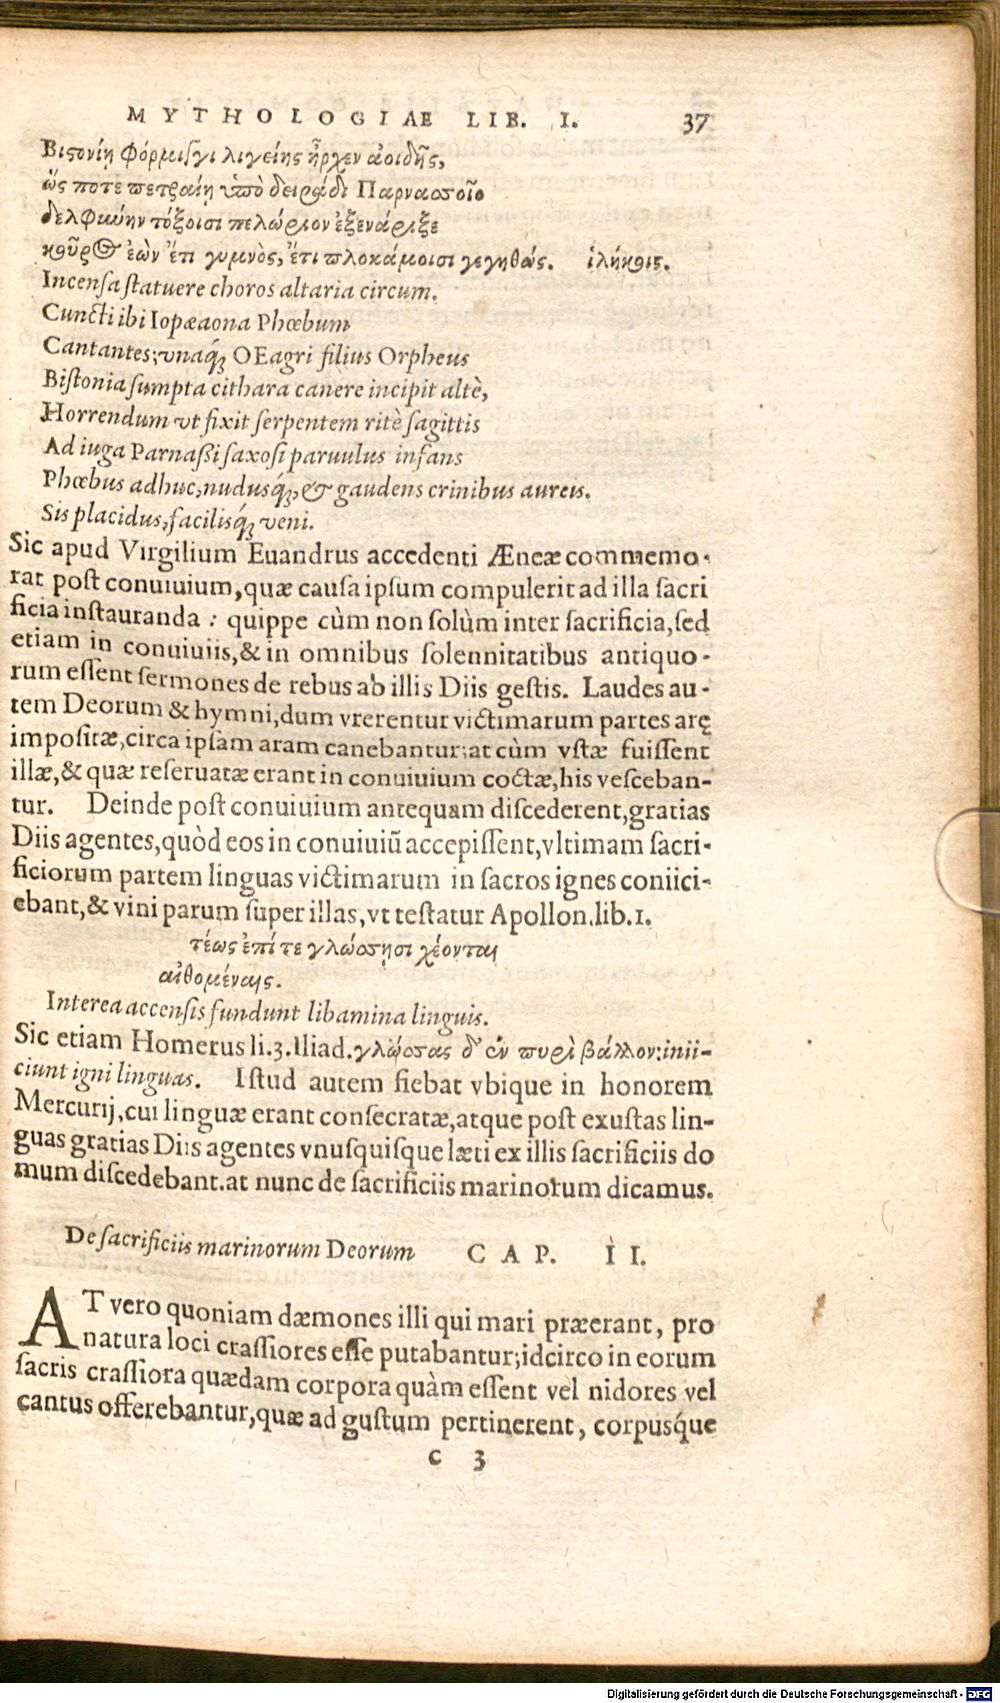 MYTHOLOGIAE LIB. I. 37
Βιστονίῃ φόρμιγγι λιγείης ἦρχεν ἀοιδῆς,
ὥς ποτε πετραίῃ ὑπὸ δειράδι Παρνασσοῖο
δελφιωύην τόξοισι πελώριον ἐξενάριξε
κοῦρος ἐὼν ἔτι γυμνὸς, ἔτι πλοκάμοισι γεγηθώς. ἱλήκοις.
Incensa statuere choros altaria circum.
Cuncti ibi Iopæaona Phœbum
Cantantes; vnaq́; OEagri filius Orpheus
Bistonia sumpta cithara canere incipit altè,
Horrendum vt fixit serpentem ritè sagittis
Ad iuga Parnaßi saxosi paruulus infans
Phœbus adhuc, nudusq́;, & gaudens crinibus aureis.
Sis placidus, facilisq́; veni.
Sic apud Virgilium Euandrus accedenti Æneæ commemo-
rat post conuiuium, quæ causa ipsum compulerit ad illa sacri
ficia instauranda : quippe cùm non solùm inter sacrificia, sed
etiam in conuiuiis, & in omnibus solennitatibus antiquo-
rum essent sermones de rebus ab illis Diis gestis. Laudes au-
tem Deorum & hymni, dum vrerentur victimarum partes arę
impositæ, circa ipsam aram canebantur: at cùm vstæ fuissent
illæ, & quæ reseruatæ erant in conuiuium coctæ, his vesceban-
tur. Deinde post conuiuium antequam discederent, gratias
Diis agentes, quòd eos in conuiuiũ accepissent, vltimam sacri-
ficiorum partem linguas victimarum in sacros ignes coniici-
ebant, & vini parum super illas, vt testatur Apollon. lib. 1.
τέως ἐπί τε γλώσσῃσι χέονται
αἰθομέναις.
Interea accensis fundunt libamina linguis.
Sic etiam Homerus li. 3. Iliad. γλώσσας δ' ἐν πυρὶ βάλλον: inii-
ciunt igni linguas. Istud autem fiebat vbique in honorem
Mercurij, cui linguæ erant consecratæ, atque post exustas lin-
guas gratias Diis agentes vnusquisque læti ex illis sacrificiis do
mum discedebant. at nunc de sacrificiis marinorum dicamus.
De sacrificiis marinorum Deorum CAP. II.
AT vero quoniam dæmones illi qui mari præerant, pro
natura loci crassiores esse putabantur; idcirco in eorum
sacris crassiora quædam corpora quàm essent vel nidores vel
cantus offerebantur, quæ ad gustum pertinerent, corpusq́ue
c 3
Digitalisierung gefördert durch die Deutsche Forschungsgemeinschaft - DFG